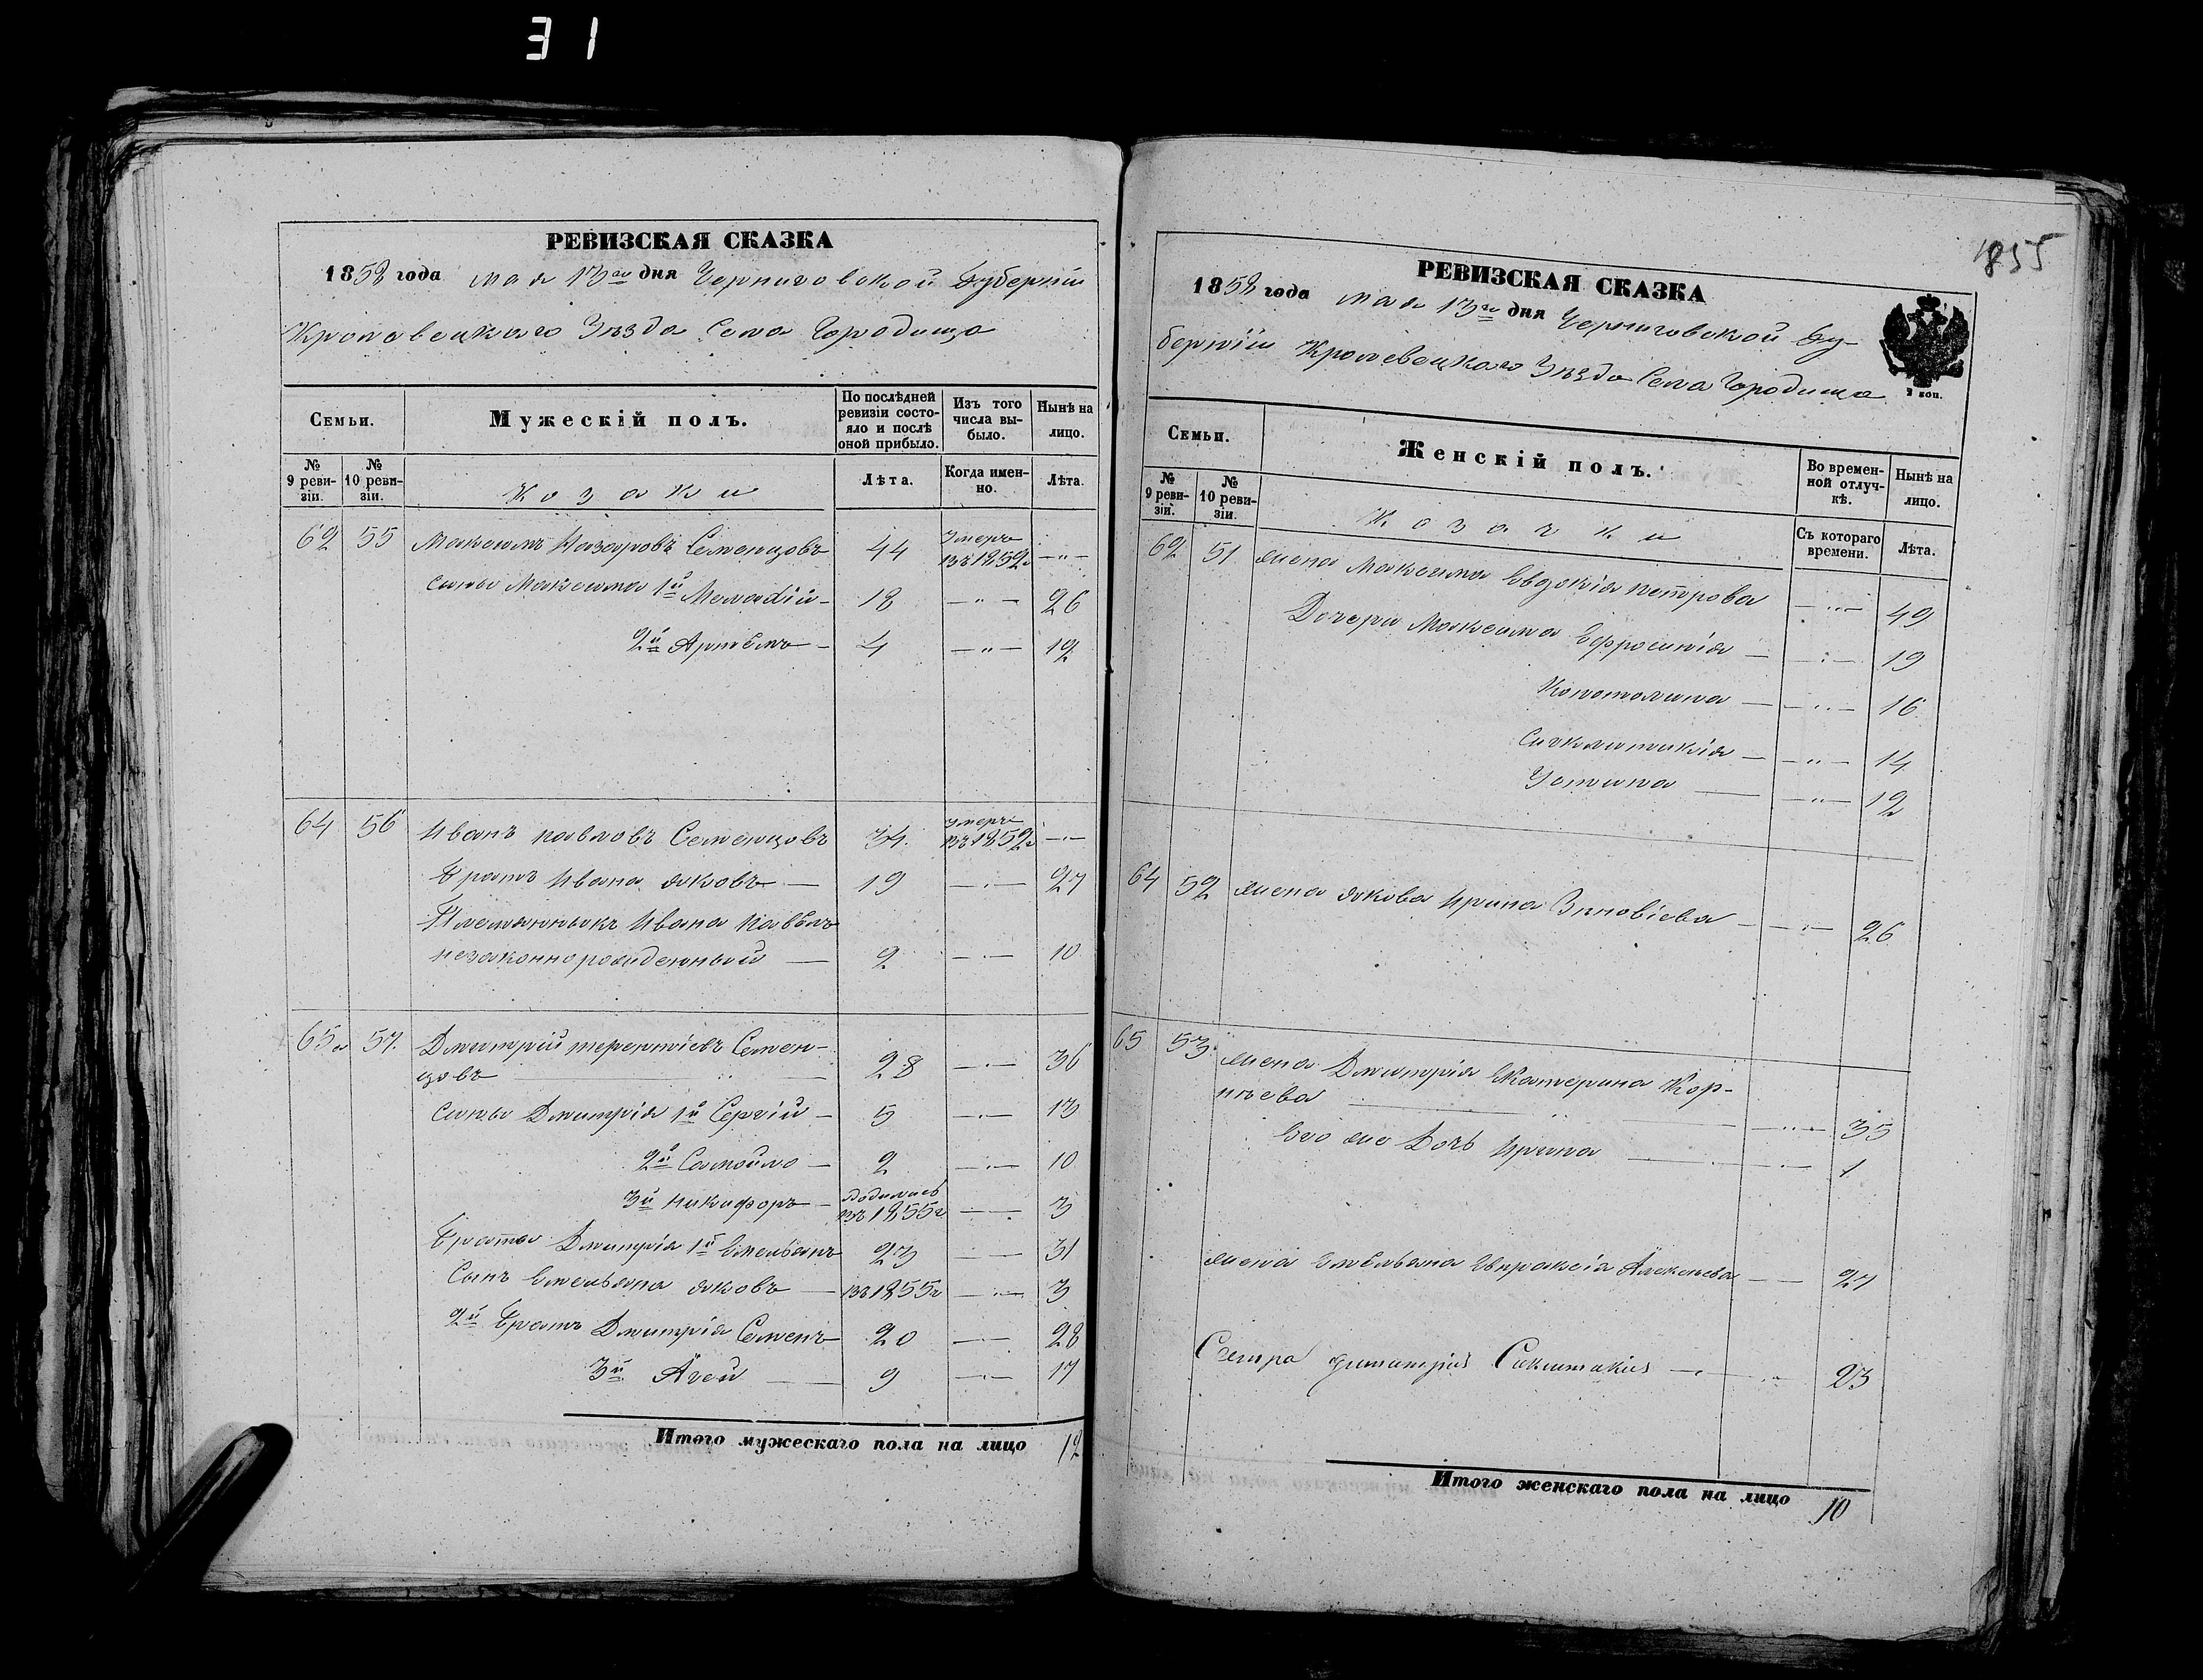 31
РЕВИЗСКАЯ СКАЗКА
1858 года мая 13го дня Черниговской Губерніи
Кролевецкаго Уѣзда Села Городища
Семьи.
Мужескій полъ.
По послѣдней ревизіи состояло и послѣ оной прибыло.
Изъ того числа выбыло.
Нынѣ на лицо.
№ 9 ревизіи.
№ 10 ревизіи.
Козаки
Лѣта.
Когда именно.
Лѣта.
62 55 Максимъ Назаровъ Семенцовъ 44 Умеръ въ 1852г —"—
сыны Максима 1й Меладій — 18 —"— 26
2й Артемъ — 4 —"— 12
64 56 Иванъ павловъ Семенцовъ 34. умеръ въ 1852г —"—
Братъ Ивана яковъ — 19 —"— 27
Племянникъ Ивана Павелъ
незаконнорожденный — 2 —"— 10
65 57. Дмитрій терентіевъ Семен-
цовъ — 28 —"— 36
Сыны Дмитрія 1й Сергій — 5 —"— 13
2й Самойло — 2 —"— 10
3й Никифоръ — родился въ 1855г —"— 3
Братья Дмитрія 1й Емельянъ 23 —"— 31
Сынъ Емельяна яковъ — въ 1855г —"— 3
2й Братъ Дмитрія Семенъ 20 —"— 28
3й Агей — 9 —"— 17
Итого мужескаго пола на лицо 12
1855
РЕВИЗСКАЯ СКАЗКА
1858 года мая 13го дня Черниговской Гу-
берніи Кролевецкаго Уѣзда Села Городища
2 коп.
Семьи.
Женскій полъ.
Во временной отлучкѣ.
Нынѣ на лицо.
№ 9 ревизіи.
№ 10 ревизіи.
Козачки
Съ котораго времени.
Лѣта.
62 51 жена Максима Евдокія петрова —"— 49
Дочери Максима Ефросинія — —"— 19
— —"— 16
Сигклитикія — —"— 14
Устина — —"— 12
64 52 жена якова Ирина Зиновіева — —"— 26
65 53 жена Дмитрія Екатерина Кор-
нѣева — —"— 35
Его же Дочь Ирина — —"— 1
жена Емельяна Евпраксія Алексѣева — — 27
Сестра димитрія Сиклитикія — —"— 23
Итого женскаго пола на лицо 10